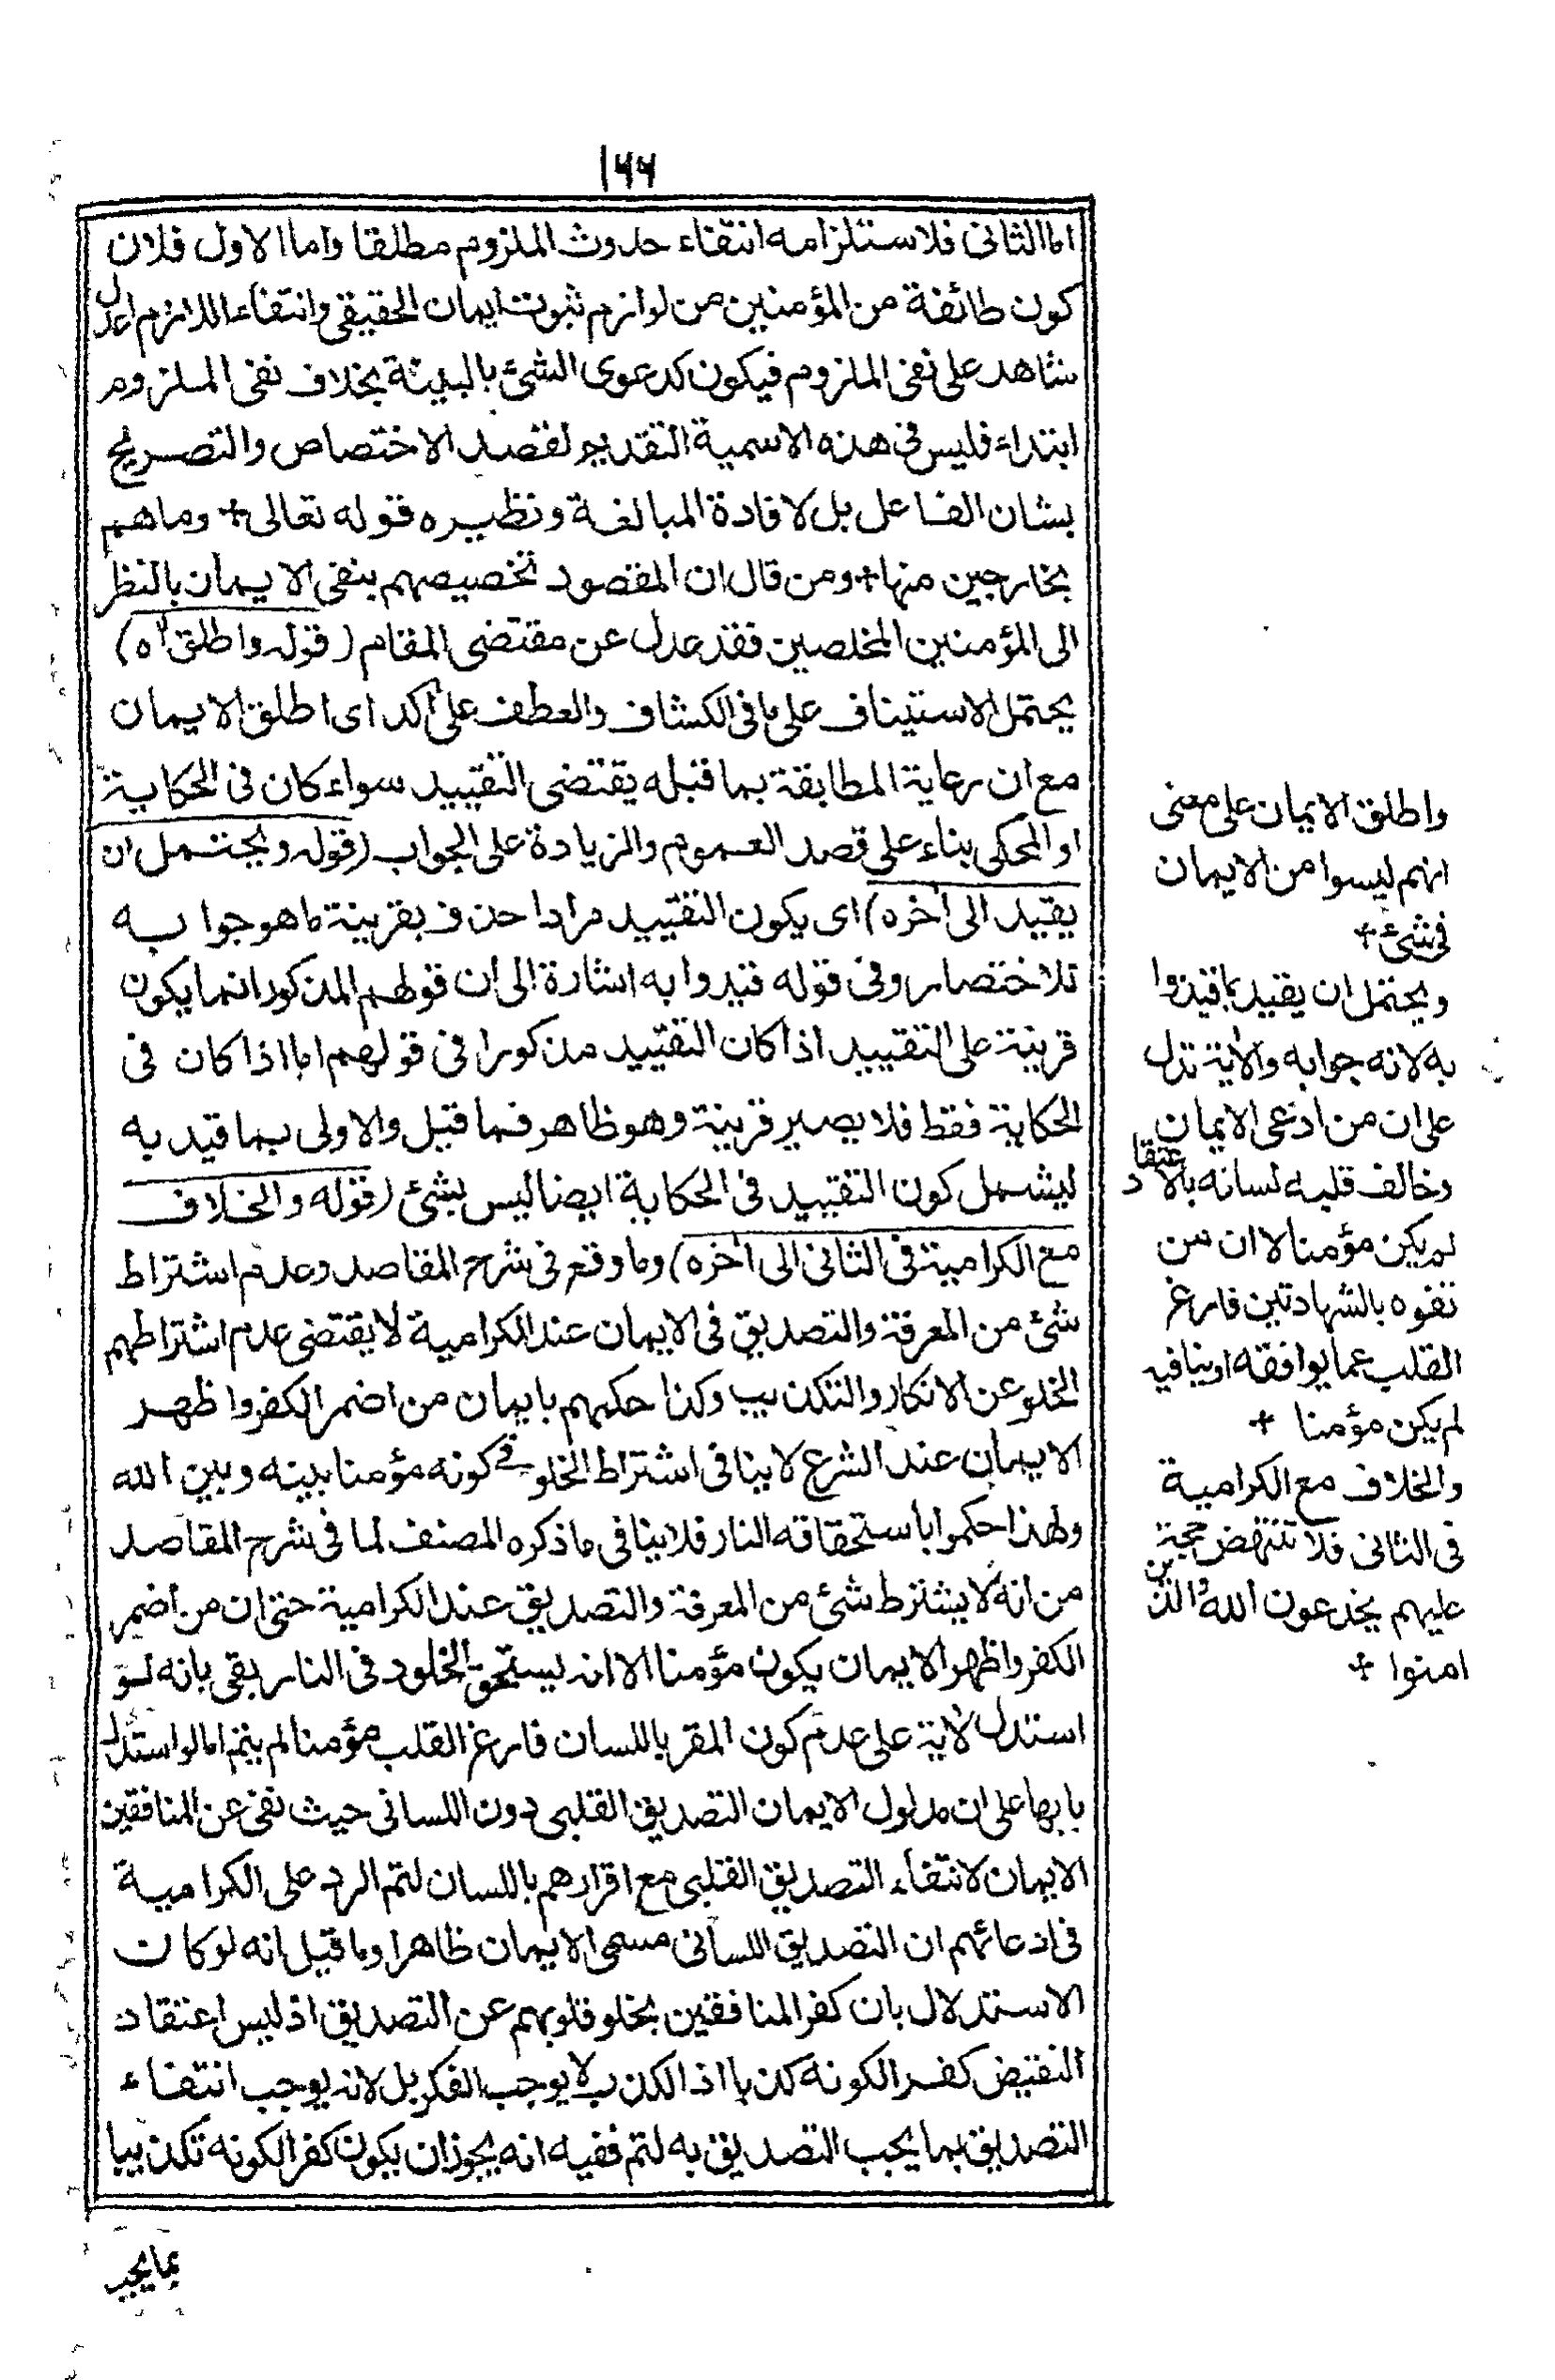 ١٦٦
اما الثانى فلاستلزامه انتفاء حدوث الملزوم مطلقا واما الاول فلان
كون طائفة من المؤمنين من لوازم ثبوت ايمان الحقيقى وانتفاء اللازم اعدل
شاهد على نفى الملزوم فيكون كدعوى الشئ بالبينة بخلاف نفى الملزوم
ابتداء فليس فى هذه الاسمية التقديم لقصد الاختصاص والتصريح
بشان الفاعل بل لافادة المبالغة ونظيره قوله تعالى + وماهم
بخارجين منها + ومن قال ان المقصود تخصيصهم بنفى الايمان بالنظر
الى المؤمنين المخلصين فقد عدل عن مقتضى المقام (قوله واطلق اه)
يحتمل الاستيناف على ما فى الكشاف والعطف على اكد اى اطلق الايمان
مع ان رعاية المطابقة بما قبله يقتضى التقييد سواء كان فى الحكاية
او المحكى بناء على قصد العموم والزيادة على الجواب (قوله ويحتمل ان
يقيد الى آخره) اى يكون التقييد مرادا حذف بقرينة ماهو جوا به
تلاختصار وفى قوله قيدوا به اشارة الى ان قولهم المذكور انما يكون
قرينة على التقييد اذا كان التقييد مذكورا فى قولهم اما اذا كان فى
الحكاية فقط فلا يصير قرينة وهو ظاهر فما قيل والاولى بما قيد به
ليشمل كون التقييد فى الحكاية ايضا ليس بشئ (قوله والخلاف
مع الكرامية فى الثانى الى آخره) وما وقع فى شرح المقاصد وعدم اشتراط
شئ من المعرفة والتصديق فى الايمان عند الكرامية لا يقتضى عدم اشتراطهم
الخلو عن الانكار والتكذيب وكذا حكمهم بايمان من اضمر الكفر واظهر
الايمان عند الشرع لا ينافى اشتراط الخلو فى كونه مؤمنا بينه وبين الله
ولهذا حكموا باستحقاقه النار فلا ينافى ما ذكره المصنف لما فى شرح المقاصد
من انه لا يشترط شئ من المعرفة والتصديق عند الكرامية حتى ان من اضمر
الكفر واظهر الايمان يكون مؤمنا الا انه يستحق الخلود فى النار بقى بانه لو
استدل لاية على عدم كون المقر باللسان فارغ القلب مؤمنا لم يتم اما لو استدل
بابها على ان مدلول الايمان التصديق القلبى دون اللسانى حيث نفى عن المنافقين
الايمان لانتفاء التصديق القلبى مع اقرارهم باللسان لتم الرد على الكرامية
فى ادعائهم ان التصديق اللسانى مسمى الايمان ظاهرا وما قيل انه لو كان
الاستدلال بان كفر المنافقين بخلو قلوبهم عن التصديق اذ ليس اعتقاد
النقيض كفرا لكونه كذبا اذ الكذب لا يوجب الفكر بل لانه يوجب انتفاء
التصديق بما يجب التصديق به لتم ففيه انه يجوز ان يكون كفرا لكونه تكذيبا
بما يجب
واطلق الايمان على معنى
انهم ليسوا من الايمان
فى شئ +
ويحتمل ان يقيد بما قيدوا
به لانه جوابه والاية تدل
على ان من ادعى الايمان
وخالف قلبه لسانه بالاعتقاد
لم يكن مؤمنا لا ان من
تفوه بالشهادتين فارغ
القلب عما يوافقه او ينافيه
لم يكن مؤمنا +
والخلاف مع الكرامية
فى الثانى فلا تنتهض حجة
عليهم يخدعون الله والذين
امنوا +